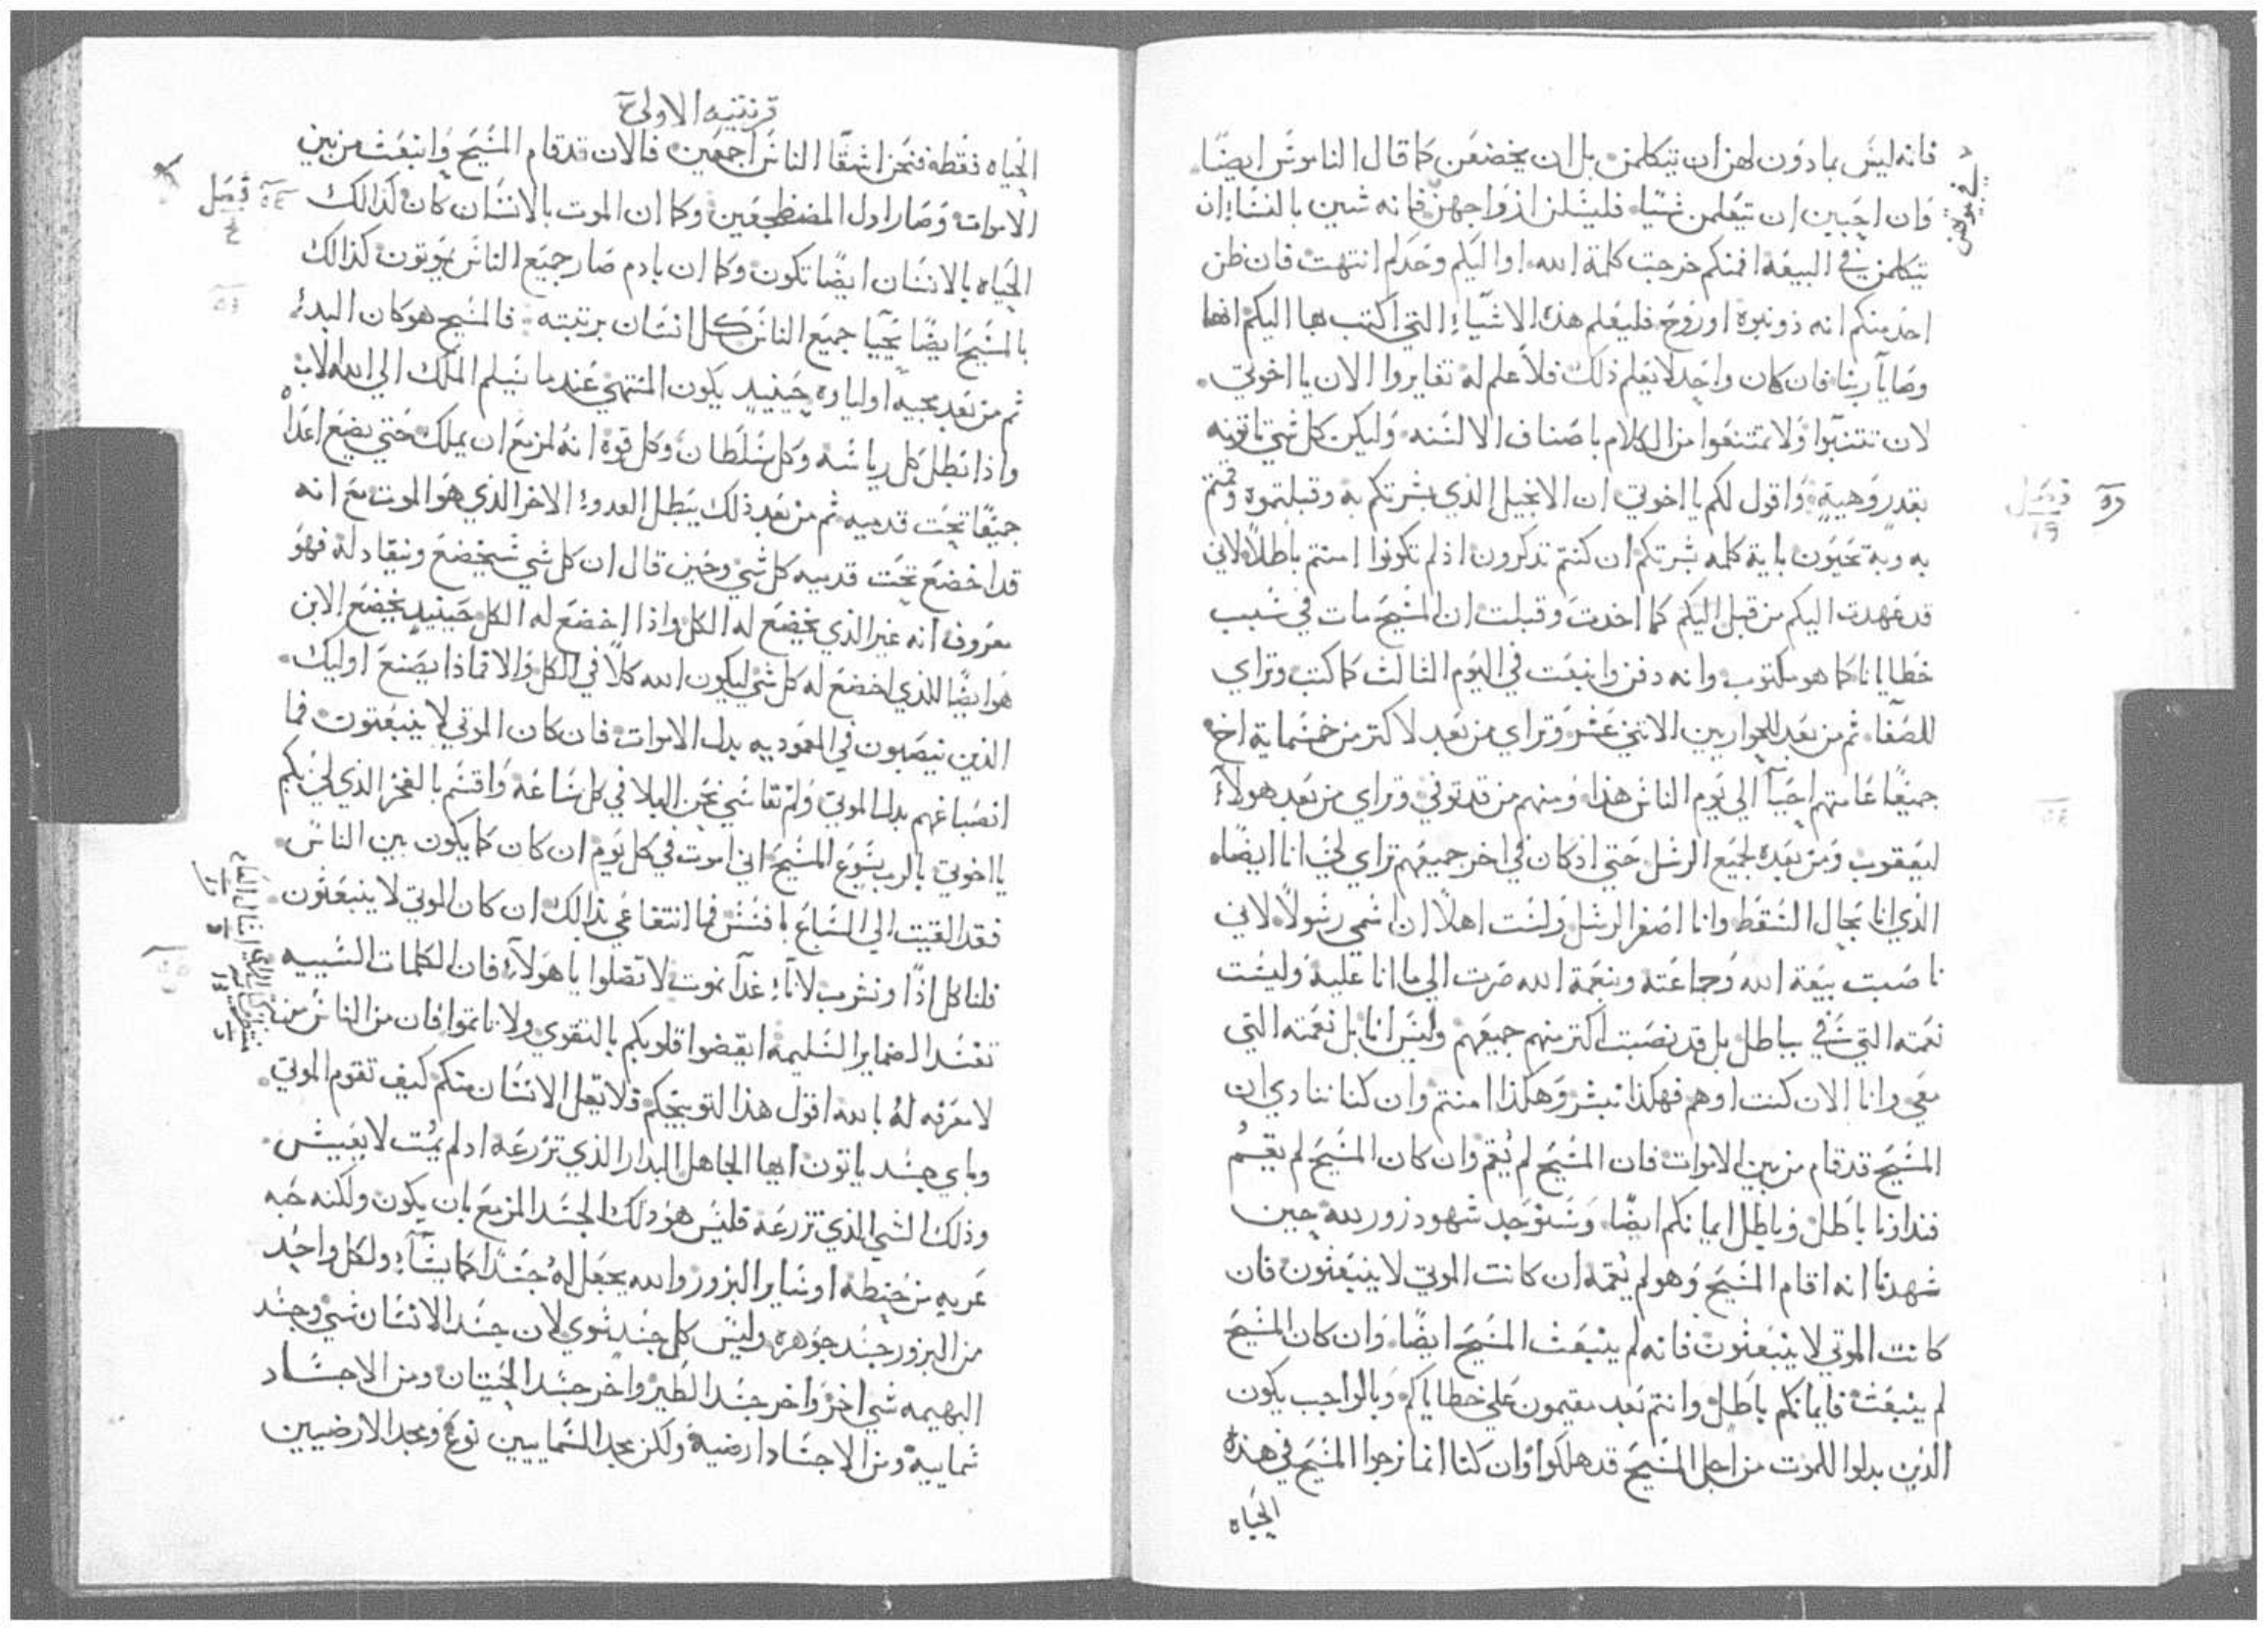 فانه ليس بمادون لهن ان يتكلمن بل ان يخضعن كما قال الناموس ايضا
وان احببن ان يتعلمن شيا فليسلن ازواجهن فانه شين بالنساء ان
يتكلمن في البيعه افمنكم خرجت كلمة الله او اليكم وحدكم انتهت فان ظن
احد منكم انه ذو نبوه او روح فليعلم هذه الاشياء التي اكتب بها اليكم انها
وصايا ربنا فان كان واحد لا يعلم ذلك فلا علم له تغايروا الان يا اخوتي
لان تتنبوا ولا تمتنعوا من الكلام باصناف الالسنه وليكن كل شي تاتونه
بقدر وهيبة واقول لكم يا اخوتي ان الانجيل الذي بشرتكم به وقبلتموه وقمتم
به وبه تحيون باية كلمه بشرتكم ان كنتم تدكرون اذ لم تكونوا امنتم باطلا لاني
قد عهدت اليكم من قبل اليكم كما اخدت وقبلت ان المسيح مات في سبب
خطايانا كما هو مكتوب وانه دفن وانبعت في اليوم الثالث كما كتب وتراي
للصفا ثم من بعد للحواريين الاتني عشر وتراي من بعد لاكتر من خمسماية اخ
جميعا عامتهم احيا الي يوم الناس هذا ومنهم من قد توفي وتراي من بعد هولاء
ليعقوب ومن بعده لجميع الرسل حتي اد كان في اخر جميعهم تراي لي انا ايضا
الذي انا بحال السقط وانا اصغر الرسل ولست اهلا ان اسمي رسولا لاني
ناصبت بيعة الله وجماعته وبنعمة الله صرت الي ما انا عليه وليست
نعمته التي في بباطل بل قد نصبت اكتر منهم جميعهم وليس انا بل نعمته التي
معي وانا الان كنت او هم فهكذا نبشر وهكذا امنتم وان كنا ننادي ان
المسيح قد قام من بين الاموات فان المسيح لم يقم وان كان المسيح لم يقم
فنداونا باطل وباطل ايمانكم ايضا وسنوجد شهود زور لله حين
شهدنا انه اقام المسيح وهو لم يقمه ان كانت الموتي لا ينبعثون فان
كانت الموتي لا ينبعثون فانه لم ينبعث المسيح ايضا وان كان المسيح
لم ينبعث فايمانكم باطل وانتم بعد مقيمون علي خطاياكم وبالواجب يكون
الذين بدلوا للموت من اجل المسيح قد هلكوا وان كنا انما نرجوا المسيح في هذه
الحياه
فصل
١٩
قرنتيه الاولي
الحياه فقطه فنحن اشقا الناس اجمعين فالان قد قام المسيح وانبعث من بين
الاموات وصار اول المضطجعين وكما ان الموت بالانسان كان كذالك
الحياه بالانسان ايضا تكون وكما ان بادم صار جميع الناس يموتون كذالك
بالمسيح ايضا يحيا جميع الناس كل انسان برتبته فالمسيح هو كان البدء
ثم من بعد مجيه اولياوه حينيد يكون المنتهي عندما يسلم الملك الي الله الاب
واذا بطل كل رياسه وكل سلطان وكل قوه انه لمزمع ان يملك حتي يضع اعداه
جميعا تحت قدميه ثم من بعد ذلك يبطل العدو الاخر الذي هو الموت مع انه
قد اخضع تحت قدميه كل شي وحين قال ان كل شي سيخضع وينقاد له فهو
معروف انه غير الذي يخضع له الكل واذا اخضع له الكل حينيد يخضع الابن
هو ايضا للذي اخضع له كل شي ليكون الله كلا في الكل والا فماذا يصنع اوليك
الذين ينصبون في المعموديه بدل الاموات فان كان الموتي لا ينبعثون فما
انصباغهم بدل الموتي ولم نقاسي نحن البلا في كل ساعه واقسم بالفخر الذي لي بكم
يا اخوتي بالرب يسوع المسيح اني اموت في كل يوم ان كان كما يكون بين الناس
فقد القيت الي السباع بافسس فما انتفاعي بذالك ان كان الموتي لا ينبعثون
فلناكل اذا ونشرب لانا غدا نموت لا تضلوا يا هولاء فان الكلمات السيه
تفسد الضماير السليمه ايقضوا قلوبكم بالتقوي ولا تاتموا فان من الناس من
لا معرفه له بالله اقول هذا لتوبيخكم فلا يقل الانسان منكم كيف تقوم الموتي
وباي جسد ياتون ايها الجاهل البدار الذي تزرعه اد لم يمت لا يعيش
وذلك الشي الذي تزرعه فليس هو ذلك الجسد المزمع بان يكون ولكنه حبه
عريه من حنطه او ساير البزور والله يجعل له جسدا كما يشاء ولكل واحد
من البزور جسد جوهره وليس كل جسد سوي لان جسد الانسان شي وجسد
البهيمه شي اخر واخر جسد الطير واخر جسد الحيتان ومن الاجساد
سماييه ومن الاجساد ارضيه ولكن مجد السماييين نوع ومجد الارضيين
فصل